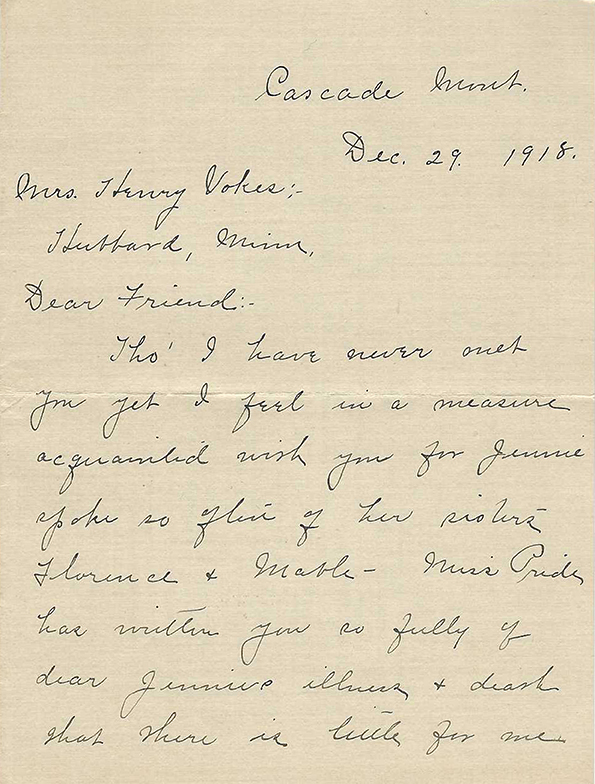 Cascade Mont.
Dec. 29. 1918.
Mrs. Henry Vokes;-
Hubbard, Minn,
Dear Friend:-
Tho' I have never met
you yet I feel in a measure
acquainted with you for Jennie
spoke so often of her sisters
Florence & Mable- Miss Pride
has written you so fully of
dear Jennies illness & death
that there is little for me